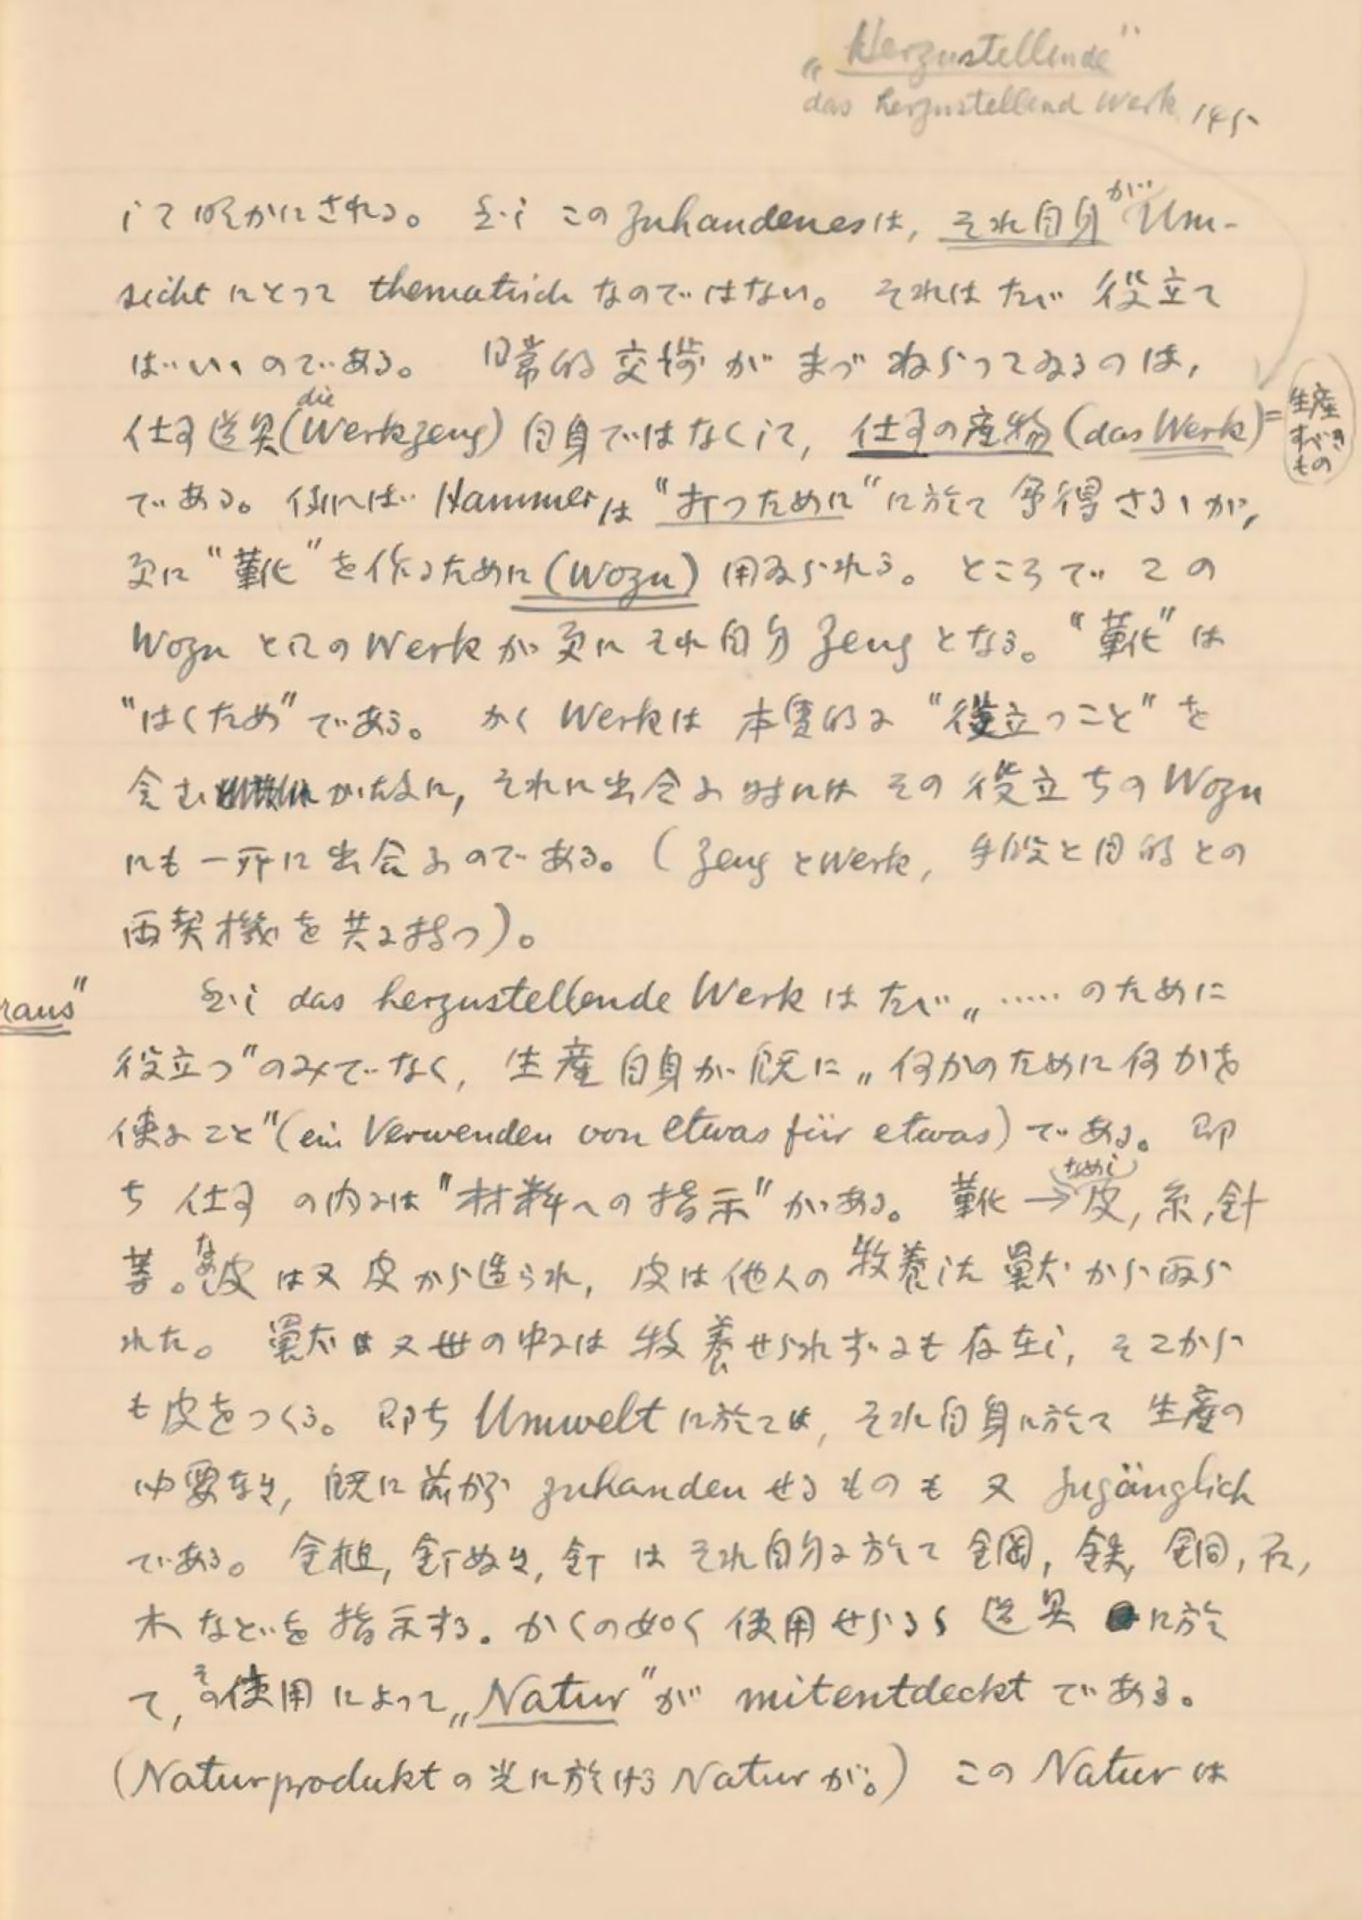 „Herzustellende"
das herzustellend Werk 145
して明かにされる。 主しこのZuhandenesは, それ自身がUm-
sicht にとって thematisch なのではない。 それはたゞ 役立て
ばいゝのである。 日常的交渉がまづねらってゐるのは,
仕事道具(die Werkzeug) 自身ではなくして, 仕事の産物 (das Werk) = 生産すべきもの
である。 例へば Hammer は "打つために" に於て 会得さるゝが,
更に "靴" を作るために (Wozu) 用ゐられる。 ところで この
Wozu としての Werk が 更に それ自身 Zeug となる。 "靴" は
"はくため" である。 かく Werk は 本質的に "役立つこと" を
含むが故に, それに出会ふ時には その 役立ちの Wozu
にも 一所に 出会ふのである。 ( Zeug と Werk, 手段と目的との
両契機を共に持つ )。
raus"
das herzustellende Werk は たゞ „ ..... のために
役立つ" のみでなく, 生産自身が既に „何かのために何かを
使ふこと" (ein Verwenden von etwas für etwas) である。 即
ち 仕事 の内には "材料への指示" がある。 靴 → なめし皮, 糸, 針
等。 なめ皮は又皮から造られ, 皮は他人の 牧養した 獣 から取ら
れた。 獣は又世の中には 牧養せられずにも存在し, そこから
も皮をつくる。 即ち Umwelt に於ては, それ自身に於て 生産の
必要なき, 既に 前から zuhanden せるものも 又 zugänglich
である。 金槌, 釘ぬき, 釘 は それ自身に於て 鋼, 鉄, 銅, 石,
木 などを 指示する。 かくの如く 使用せらるゝ 道具 に於
て, その使用によって „Natur" が mitentdeckt である。
(Naturprodukt の光に於ける Natur が。) この Natur は